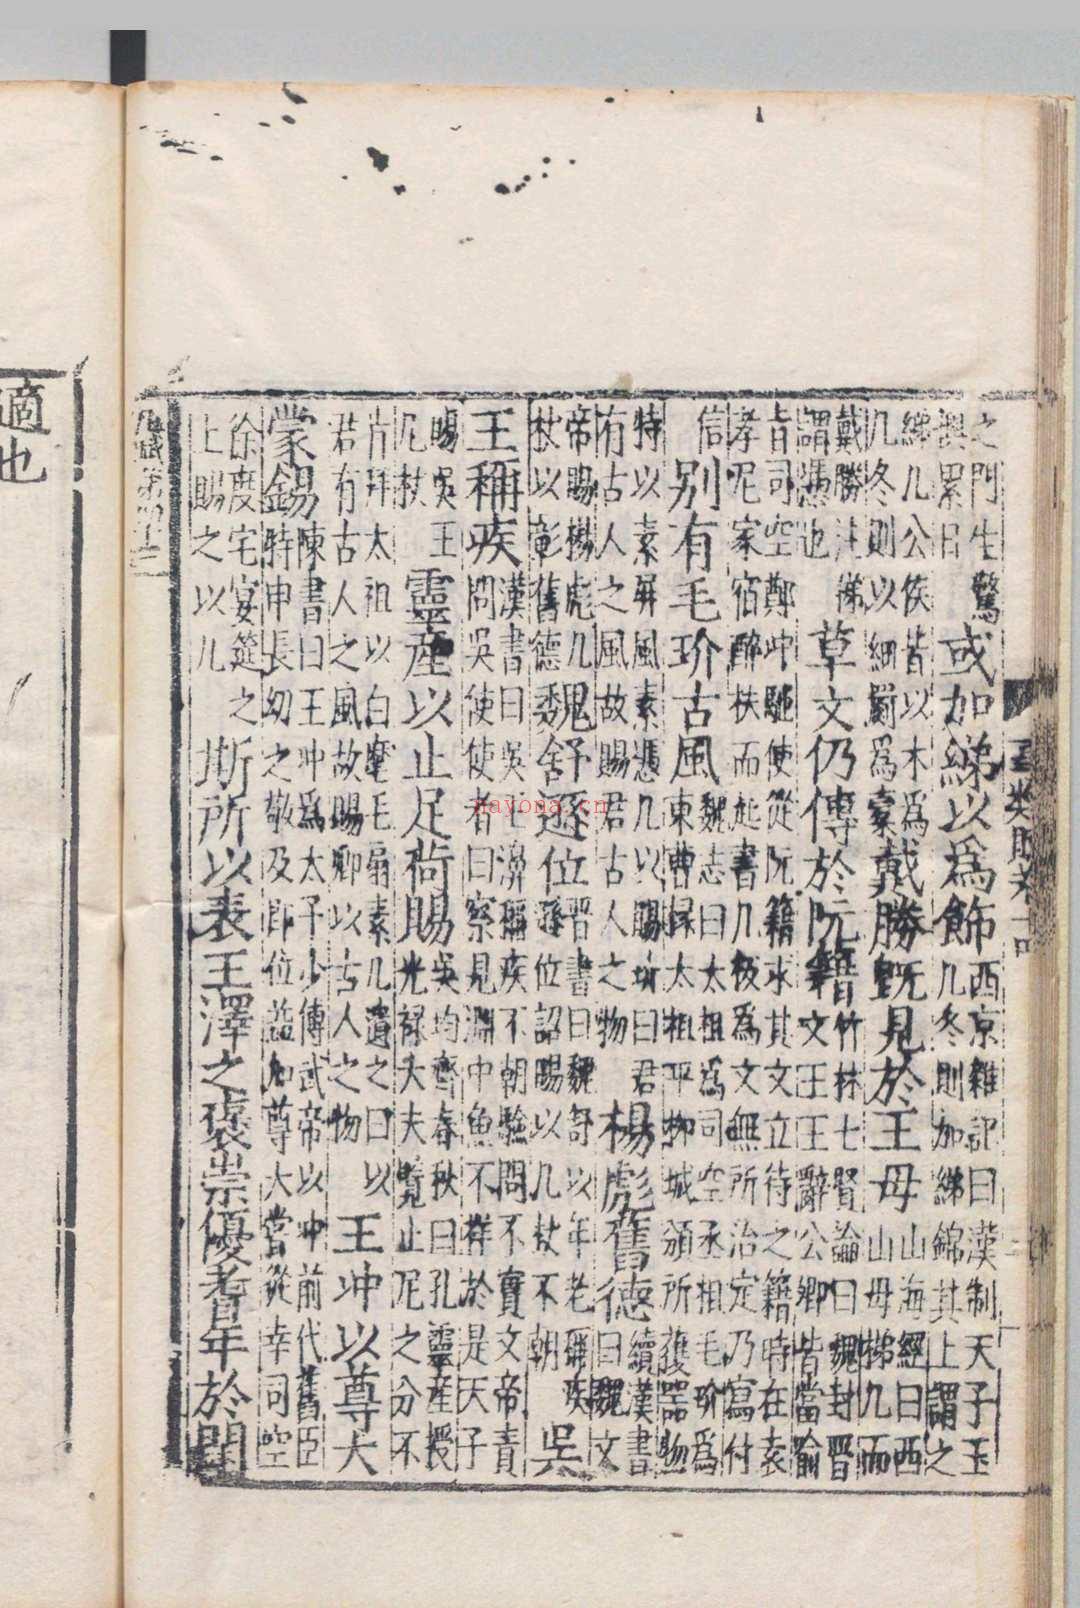 之門生驚
累日
或加綈以爲飾
西京雜記曰漢制天子玉
几冬則加綈錦其上謂之
綈几公侯皆以木爲
几冬則以細罽爲橐
戴勝既見於王母
山海經曰西
山母梯几而
戴勝注梯
謂憑也
草文仍傳於阮籍
竹林七賢論曰魏封晉
文王王辭公卿皆當喻
旨司空鄭冲馳使從阮籍求其文立待之籍時在袁
孝尼家宿醉扶而起書几板爲文無所治定乃寫付
信
别有毛玠古風
魏志曰太祖爲司空丞相毛玠爲
東曹掾太祖平柳城頒所獲器物
特以素屏風素憑几以賜玠曰君
有古人之風故賜君古人之物
楊彪舊德
續漢書
曰魏文
帝賜楊彪几
杖以彰舊德
魏舒遜位
晋書曰魏舒以年老稱疾
遜位詔賜以几杖不朝
吳
王稱疾
漢書曰吳王濞稱疾不朝驗問不實文帝責
問吳使使者曰察見淵中魚不祥於是天子
賜吳王
几杖
靈産以止足荷賜
吳均齊春秋曰孔靈産授
光禄大夫覽止足之分不
肯拜太祖以白麈毛扇素几遺之曰以
君有古人之風故賜卿以古人之物
王冲以尊大
蒙錫
陳書曰王冲爲太子少傅武帝以冲前代舊臣
特申長幼之敬及即位益加尊大嘗從幸司空
徐度宅宴筵之
上賜之以几
斯所以表王澤之褒崇優耆年於閒
適也
nayona.cn